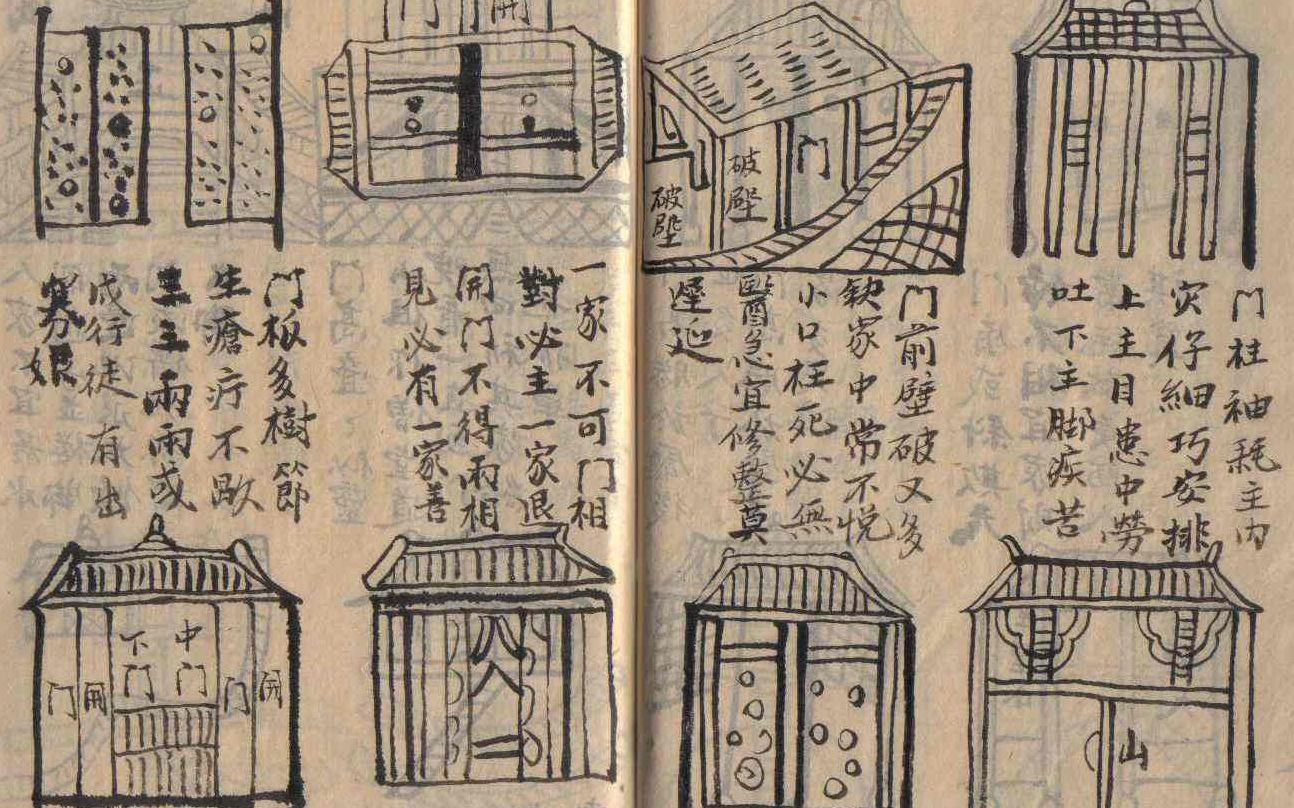 门柱袖耗主内
灾仔細巧安排
上主目患中勞
吐下主脚疾苦
门
破壁
破壁
门前壁破又多
缺家中常不悦
小口枉死必無
醫急宜修整莫
遲延
门
開
一家不可门相
對必主一家退
開门不得兩相
見必有一家善
门板多樹節
生瘡疔不歇
三主兩兩或
成行徒有出
娘
山
八
人
二
中门
下门
開
门
開
门